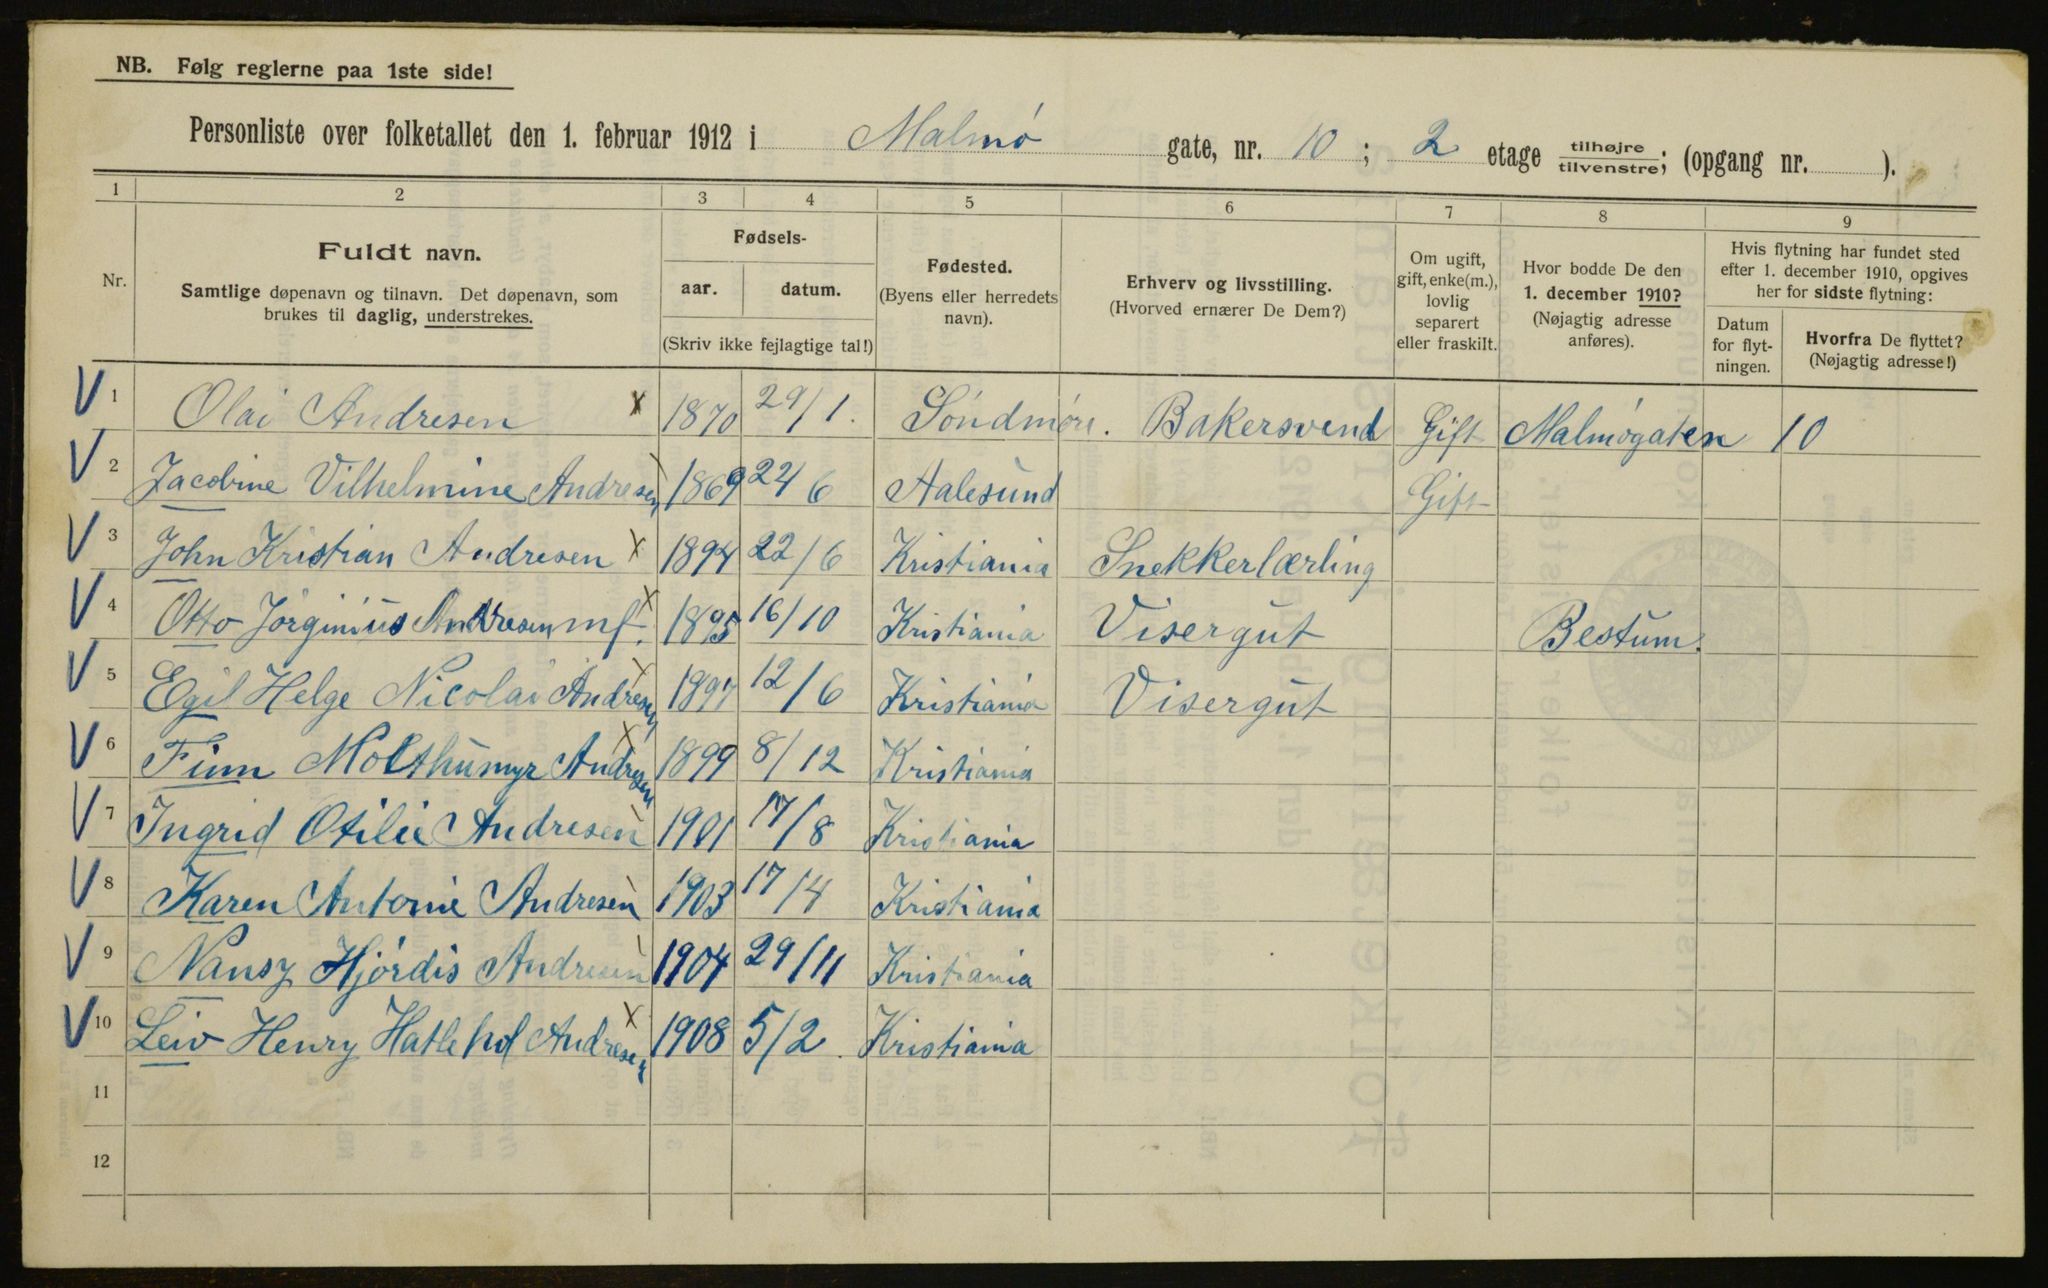 NB. Følg reglerne paa 1ste side!
Personliste over folketallet den 1. februar 1912 i Malmø gate, nr. 10; 2 etage tilhøjre/tilvenstre; (opgang nr. ).
1 2 3 4 5 6 7 8 9
Nr.
Fuldt navn.
Samtlige døpenavn og tilnavn. Det døpenavn, som
brukes til daglig, understrekes.
Fødsels-
aar. datum.
(Skriv ikke fejlagtige tal!)
Fødested.
(Byens eller herredets
navn).
Erhverv og livsstilling.
(Hvorved ernærer De Dem?)
Om ugift,
gift, enke(m.),
lovlig
separert
eller fraskilt.
Hvor bodde De den
1. december 1910?
(Nøjagtig adresse
anføres).
Hvis flytning har fundet sted
efter 1. december 1910, opgives
her for sidste flytning:
Datum
for flyt-
ningen.
Hvorfra De flyttet?
(Nøjagtig adresse!)
V 1 Olai Andresen x 1870 29/1. Söndmöre. Bakersvend Gift Malmögaten 10
V 2 Jacobine Vilhelmine Andresen 1869 22/6 Aalesund Gift
V 3 John Kristian Andresen x 1894 22/6 Kristiania Snekkerlærling
V 4 Otto Jörginius Andresen mf. x 1895 16/10 Kristiania Visergut Bestum.
V 5 Egil Helge Nicolai Andresen x 1897 12/6 Kristiania Visergut
V 6 Finn Andresen x 1899 8/12 Kristiania
V 7 Ingrid Otilie Andresen 1901 17/8 Kristiania
V 8 Karen Antonie Andresen 1903 17/4 Kristiania
V 9 Nansy Hjördis Andresen 1904 29/11 Kristiania
V 10 Leiv Henry Hatlehol Andresen x 1908 5/2 Kristiania
11
12